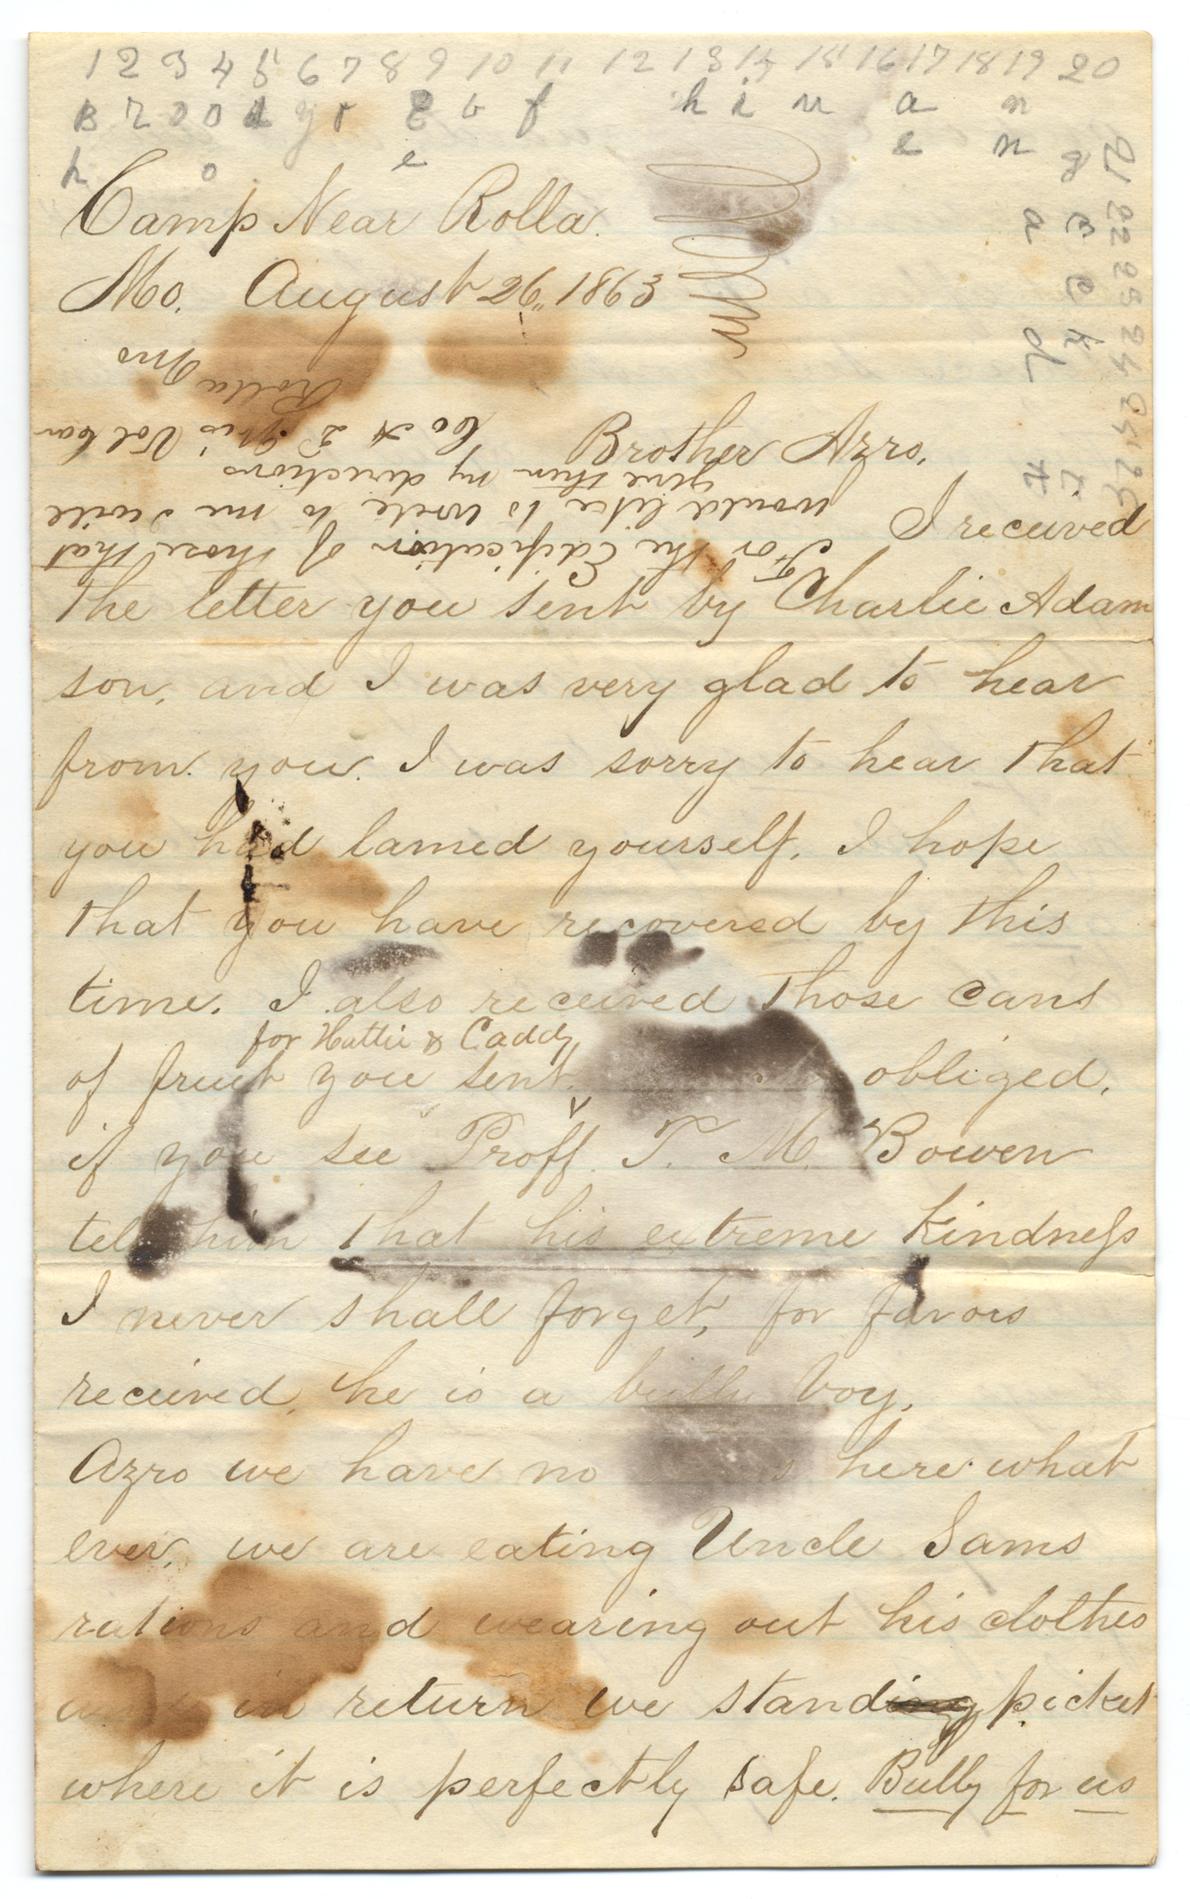 1 2 3 4 5 6 7 8 9 10 11 12 13 14 15 16 17 18 19 20
Camp Near Rolla.
Mo. August 26" 1863
Brother Azro,
I received
the letter you sent by Charlie Adam
son, and I was very glad to hear
from you. I was sorry to hear that
you had lamed yourself. I hope
that you have recovered by this
time. I also received those cans
for Hattie & Caddy
of fruit you sent. obliged,
if you see Proff. T. M. Bowen
tell him that his extreme kindness
I never shall forget, for favors
received, he is a bully boy.
Azro we have no here what
ever, we are eating Uncle Sams
rations and wearing out his clothes
and in return we standing picket
where it is perfectly safe. Bully for us
For the Edification of those that
would like to write to me I will
give them my directions
Co A 2" Wis Vol Cav
Rolla Mo